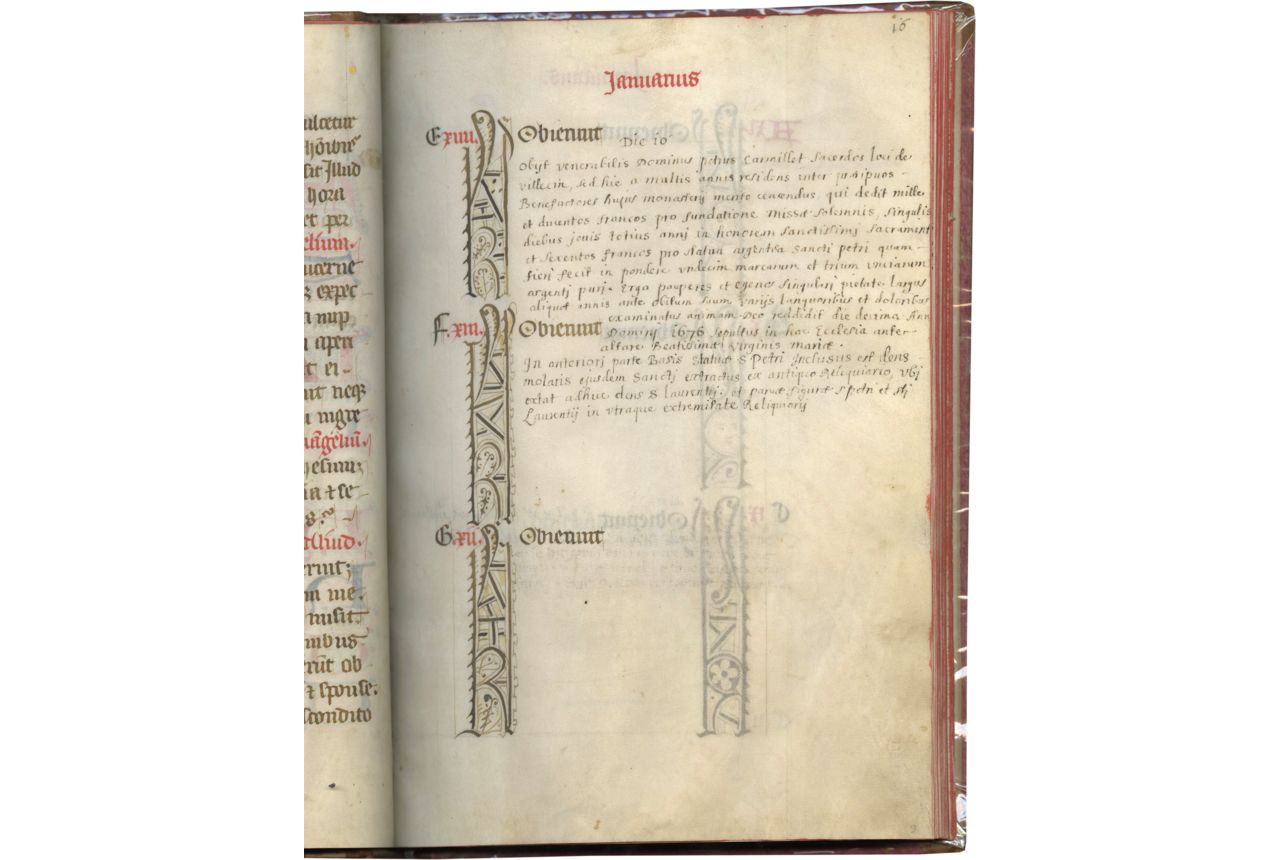 ulcetur
hōibꝰ
sit Illud
hora
et per
elium.
ucerne
s expec
a nup
aperi
t ei-
nt neqȝ
nigre
uāgeliū.
a ⁊ se
Illud.
erint;
m me.
misit.
nibus
erūt ob
⁊ sponse.
scondito
16
Januarius
E xiiii. KL Obierunt
Die 10
Obijt venerabilis Dominus petrus Carmillet Sacerdos loci de
villecin, sed hic a multis annis residens inter præcipuos
Benefactores hujus monasterij merito censendus, qui dedit mille
et ducentos francos pro fundatione missæ Solemnis, singulis
diebus jouis totius annj in honorem Sanctissimj Sacrament
et sexentos francos pro statua argentea Sancti petri quam
fierj fecit in pondere vndecim marcarum et trium vnciarum
argentj purj. Ergo pauperes et egenos singularj pietate largus
aliquot annis ante obitum suum varijs languoribus et doloribus
examinatus animam Deo reddidit die decima Ann
F. xiii. Obierunt
Dominj 1676 sepultus in hac Ecclesia ante
altare Beatissimæ virginis mariæ.
In anteriorj parte Basis statuæ S Petri Inclusus est dens
molaris ejusdem Sanctj extractus ex antiquo Reliquiario, vbj
extat adhuc dens S Laurentij; et paruæ figuræ S petri et Stj
Laurentij in vtraque extremitate Reliquiarij
G. xii. Obierunt
3